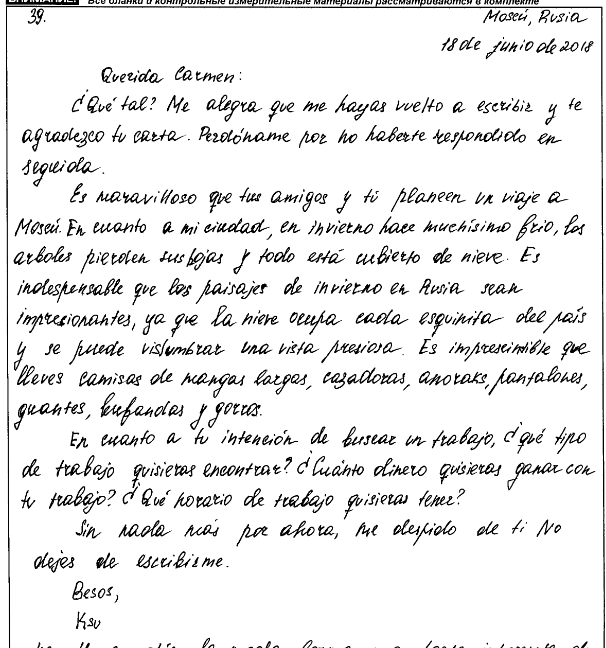 ВНИМАНИЕ! Все бланки и контрольные измерительные материалы рассматриваются в комплекте
39.
Moscú, Rusia
18 de junio de 2018
Querida Carmen:
¿Qué tal? Me alegra que me hayas vuelto a escribir y te
agradezco tu carta. Perdóname por no haberte respondido en
seguida.
Es maravilloso que tus amigos y tú planeen un viaje a
Moscú. En cuanto a mi ciudad, en invierno hace muchísimo frío, los
arboles pierden sus hojas y todo está cubierto de nieve. Es
indespensable que los paisajes de invierno en Rusia sean
impresionantes, ya que la nieve ocupa cada esquinita del país
y se puede vislumbrar una vista presiosa. Es imprescindible que
lleves camisas de mangas largas, cazadoras, anoraks, pantalones,
guantes, bufandas y gorros.
En cuanto a tu intención de buscar un trabajo, ¿qué tipo
de trabajo quisieras encontrar? ¿Cuánto dinero quisieras ganar con
tu trabajo? ¿Qué horario de trabajo quisieras tener?
Sin nada más por ahora, me despido de ti No
dejes de escribirme.
Besos,
Ksu